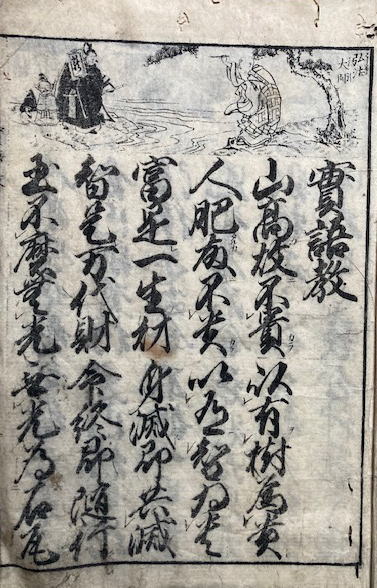 弘法
大師
實語教
山高故不貴以有樹為貴
人肥故不貴以有智為貴
富是一生財身滅即共滅
智是万代財命終即随行
玉不磨無光無光為石瓦